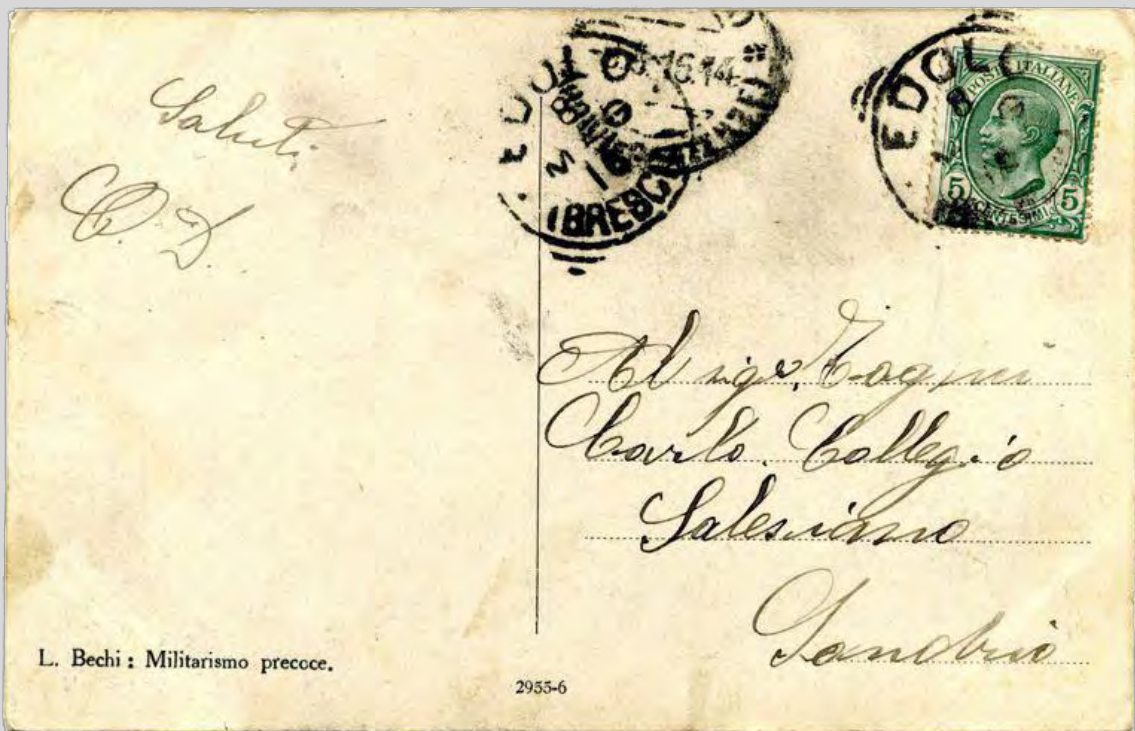 Saluti
C. D.
EDOLO
(BRESCIA)
16.14
EDOLO
8
POSTE ITALIANE
5 CENTESIMI 5
Al sigr.
Carlo. Collegio
Salesiano
Sondrio
L. Bechi : Militarismo precoce.
2955-6